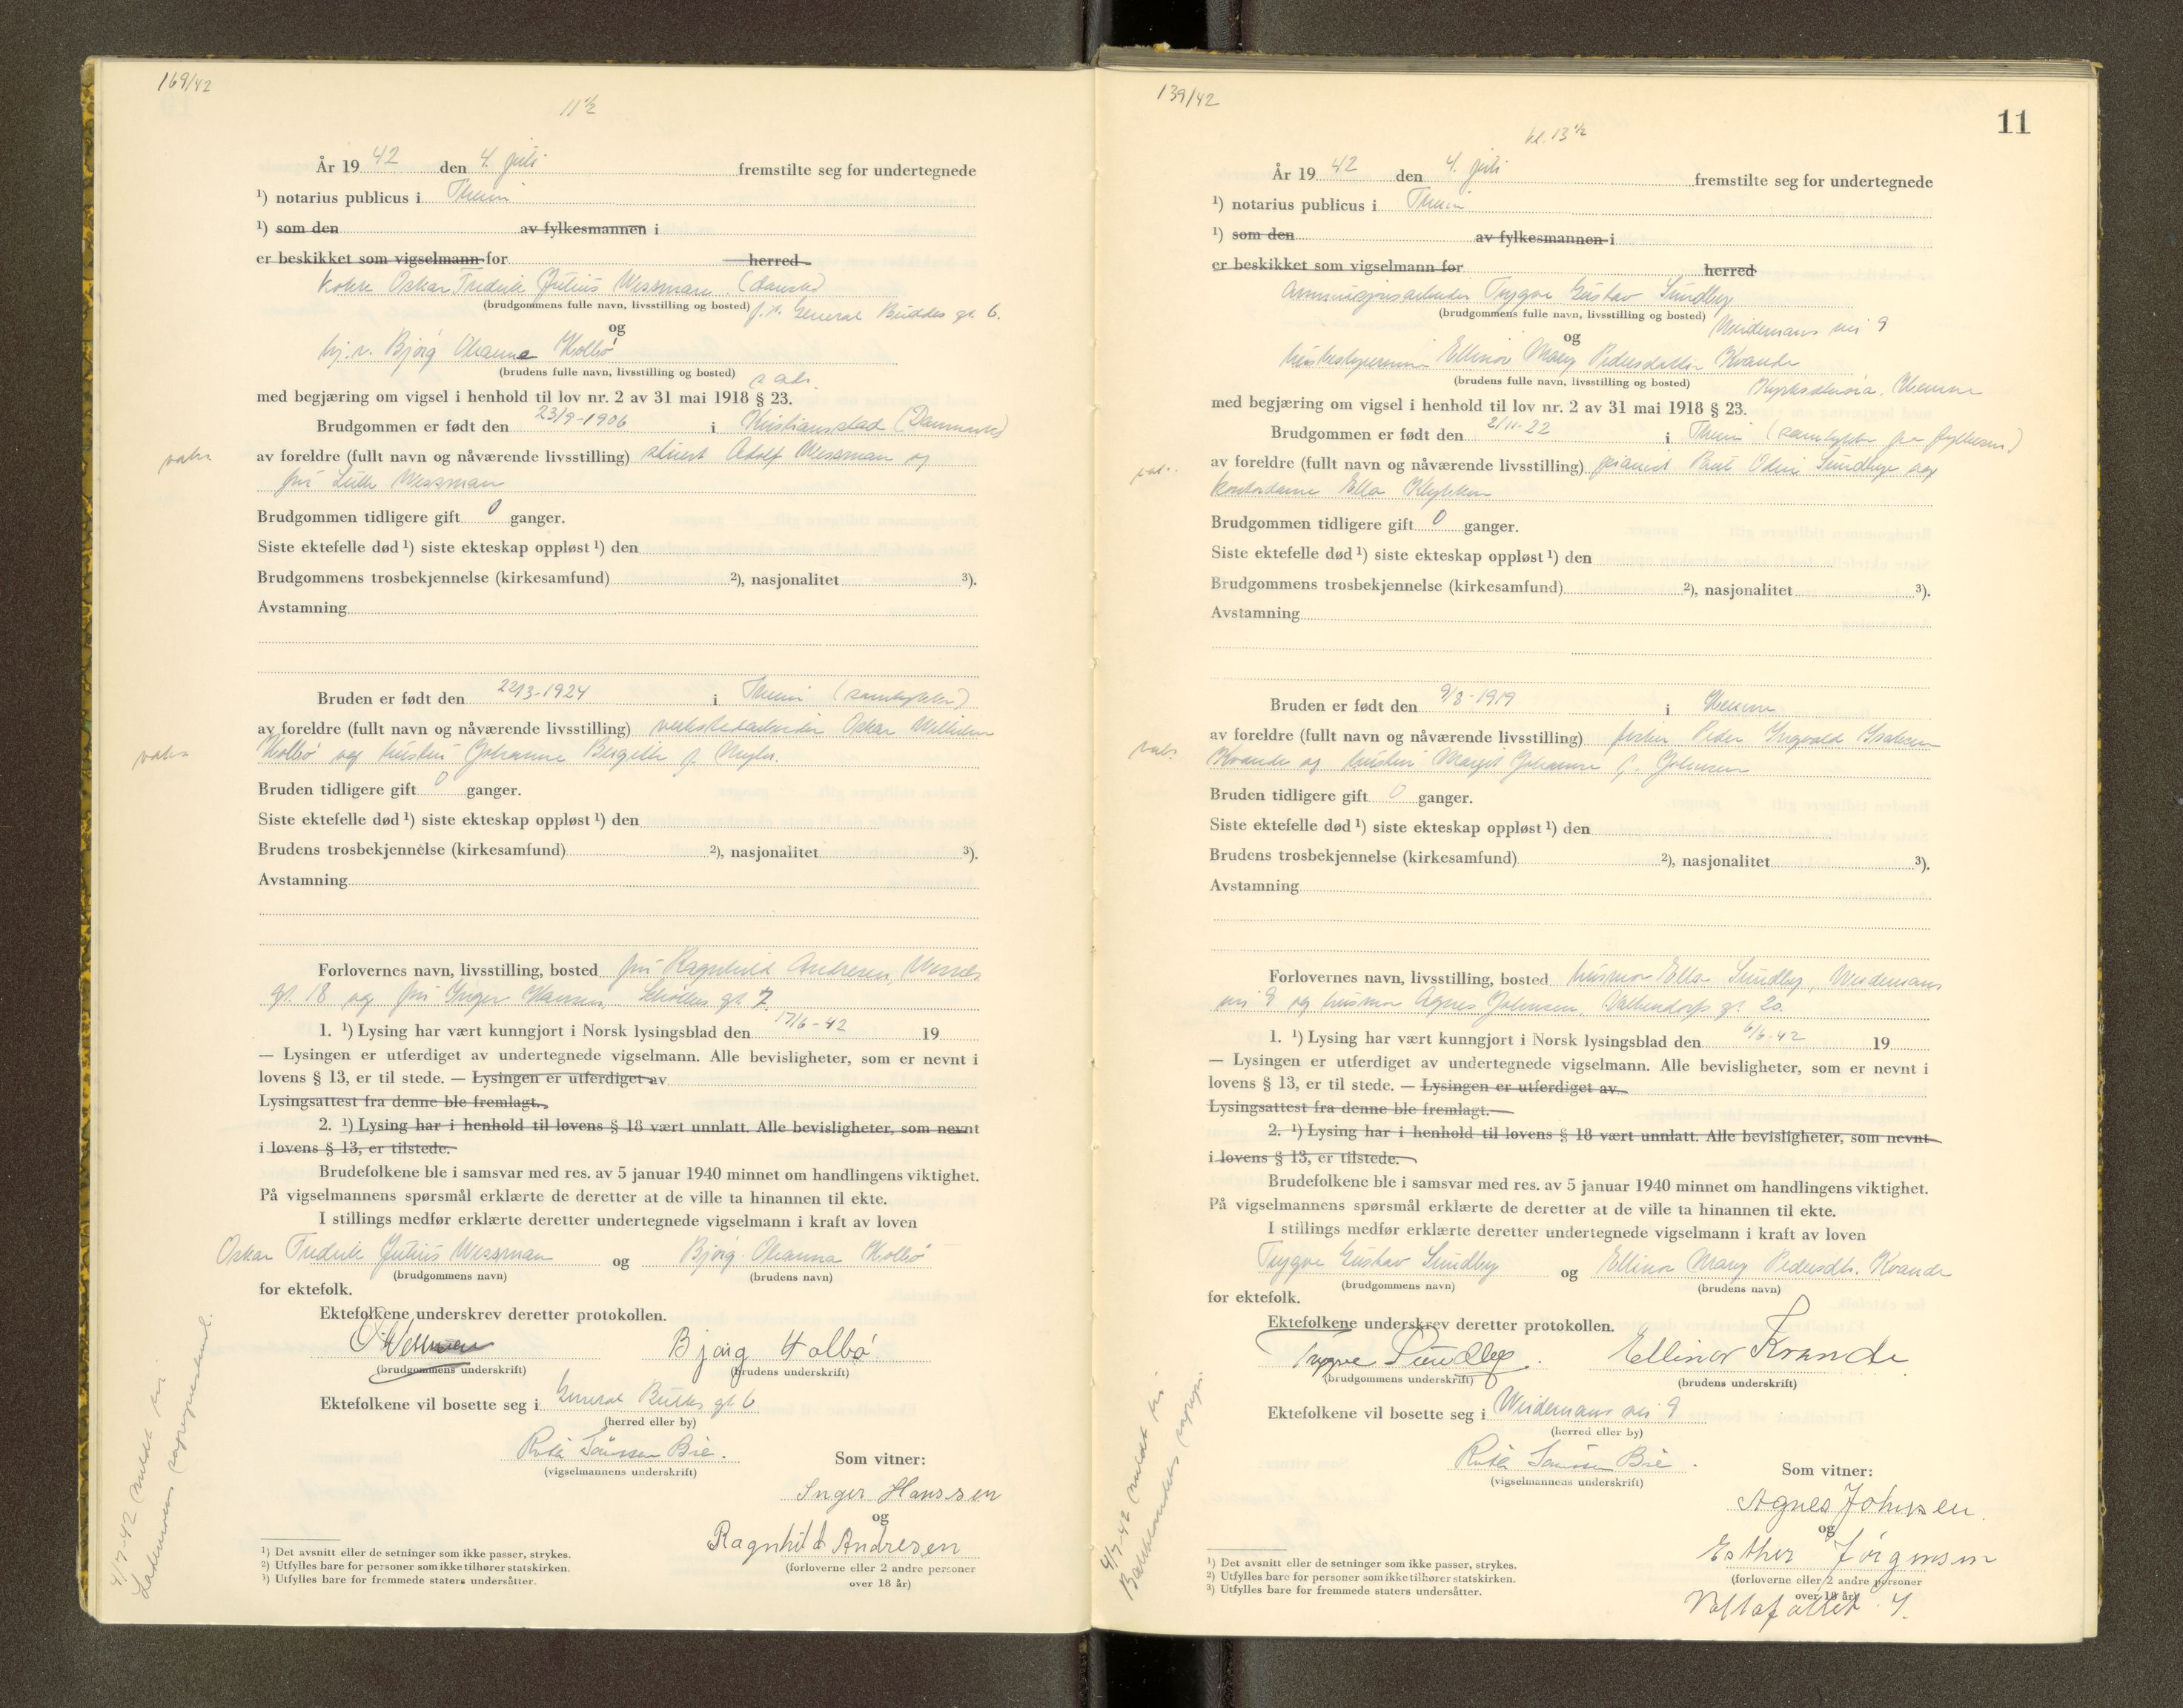 169/42
11 1/2
År 19 42 den 4. juli fremstilte seg for undertegnede
1) notarius publicus i Thrni
1) som den av fylkesmannen i
er beskikket som vigselmann for herred
kokk Oskar Fredrik Julius Wessman (dansk)
(brudgommens fulle navn, livsstilling og bosted) General Buddes gt. 6.
og
Bjørg Ohanna Holbø
(brudens fulle navn, livsstilling og bosted)
med begjæring om vigsel i henhold til lov nr. 2 av 31 mai 1918 § 23.
Brudgommen er født den 23/9-1906 i Kristiansstad (Danmark)
av foreldre (fullt navn og nåværende livsstilling) Adolf Wessman og
fru Wessman
Brudgommen tidligere gift 0 ganger.
Siste ektefelle død 1) siste ekteskap oppløst 1) den
Brudgommens trosbekjennelse (kirkesamfund) 2), nasjonalitet 3).
Avstamning
Bruden er født den 22/3-1924 i (samtykke)
av foreldre (fullt navn og nåværende livsstilling) verkstedarbeider Oskar Wilhelm
Holbø og hustru Johanne Bergitte f.
Bruden tidligere gift 0 ganger.
Siste ektefelle død 1) siste ekteskap oppløst 1) den
Brudens trosbekjennelse (kirkesamfund) 2), nasjonalitet 3).
Avstamning
Forlovernes navn, livsstilling, bosted fru Ragnhild Andresen, Wessels
gt. 18 og fru Inger Hanssen, gt. 7.
1. 1) Lysing har vært kunngjort i Norsk lysingsblad den 17/6-42 19
— Lysingen er utferdiget av undertegnede vigselmann. Alle bevisligheter, som er nevnt i
lovens § 13, er til stede. — Lysingen er utferdiget av
Lysingsattest fra denne ble fremlagt.
2. 1) Lysing har i henhold til lovens § 18 vært unnlatt. Alle bevisligheter, som nevnt
i lovens § 13, er tilstede.
Brudefolkene ble i samsvar med res. av 5 januar 1940 minnet om handlingens viktighet.
På vigselmannens spørsmål erklærte de deretter at de ville ta hinannen til ekte.
I stillings medfør erklærte deretter undertegnede vigselmann i kraft av loven
Oskar Fredrik Julius Wessman og Bjørg Ohanna Holbø
(brudgommens navn) (brudens navn)
for ektefolk.
Ektefolkene underskrev deretter protokollen.
O Wessman Bjørg Holbø
(brudgommens underskrift) (brudens underskrift)
Ektefolkene vil bosette seg i General Buddes gt 6
(herred eller by)
Bie.
(vigselmannens underskrift)
Som vitner:
Inger Hanssen
og
Ragnhild Andresen
(forloverne eller 2 andre personer
over 18 år)
1) Det avsnitt eller de setninger som ikke passer, strykes.
2) Utfylles bare for personer som ikke tilhører statskirken.
3) Utfylles bare for fremmede staters undersåtter.
4/7-42 meldt til
Lademoens sogneprestemb.
139/42
11
kl. 13 1/2
År 19 42 den 4. juli fremstilte seg for undertegnede
1) notarius publicus i
1) som den av fylkesmannen i
er beskikket som vigselmann for herred
Trygve Gustav Sundby
(brudgommens fulle navn, livsstilling og bosted) Weidemans vei 9
og
Ellinor Mary Pedersdatter Kvande
(brudens fulle navn, livsstilling og bosted) Kyrksæterøra. Hemne
med begjæring om vigsel i henhold til lov nr. 2 av 31 mai 1918 § 23.
Brudgommen er født den 2/11-22 i (samtykke fra fylkesm)
av foreldre (fullt navn og nåværende livsstilling) pianist Paul Odin Sundbye og
kontordame Ella Klykken
Brudgommen tidligere gift 0 ganger.
Siste ektefelle død 1) siste ekteskap oppløst 1) den
Brudgommens trosbekjennelse (kirkesamfund) 2), nasjonalitet 3).
Avstamning
Bruden er født den 9/8-1919 i Hemne
av foreldre (fullt navn og nåværende livsstilling) fisker Peder Ingvald Isaksen
Kvande og hustru Margit Johanne f. Johnsen
Bruden tidligere gift 0 ganger.
Siste ektefelle død 1) siste ekteskap oppløst 1) den
Brudens trosbekjennelse (kirkesamfund) 2), nasjonalitet 3).
Avstamning
Forlovernes navn, livsstilling, bosted husmor Ella Sundby, Weidemans
vei 9 og husmor Agnes Johnsen, gt. 20.
1. 1) Lysing har vært kunngjort i Norsk lysingsblad den 6/6-42 19
— Lysingen er utferdiget av undertegnede vigselmann. Alle bevisligheter, som er nevnt i
lovens § 13, er til stede. — Lysingen er utferdiget av
Lysingsattest fra denne ble fremlagt.
2. 1) Lysing har i henhold til lovens § 18 vært unnlatt. Alle bevisligheter, som nevnt
i lovens § 13, er tilstede.
Brudefolkene ble i samsvar med res. av 5 januar 1940 minnet om handlingens viktighet.
På vigselmannens spørsmål erklærte de deretter at de ville ta hinannen til ekte.
I stillings medfør erklærte deretter undertegnede vigselmann i kraft av loven
Trygve Gustav Sundby og Ellinor Mary Pedersdtr. Kvande
(brudgommens navn) (brudens navn)
for ektefolk.
Ektefolkene underskrev deretter protokollen.
Trygve Sundby. Ellinor Kvande
(brudgommens underskrift) (brudens underskrift)
Ektefolkene vil bosette seg i Weidemans vei 9
(herred eller by)
Bie.
(vigselmannens underskrift)
Som vitner:
Agnes Johnsen.
og
Esther Jørgensen
(forloverne eller 2 andre personer
over 18 år)
1) Det avsnitt eller de setninger som ikke passer, strykes.
2) Utfylles bare for personer som ikke tilhører statskirken.
3) Utfylles bare for fremmede staters undersåtter.
4/7-42 meldt til
Bakklandets sognepr.